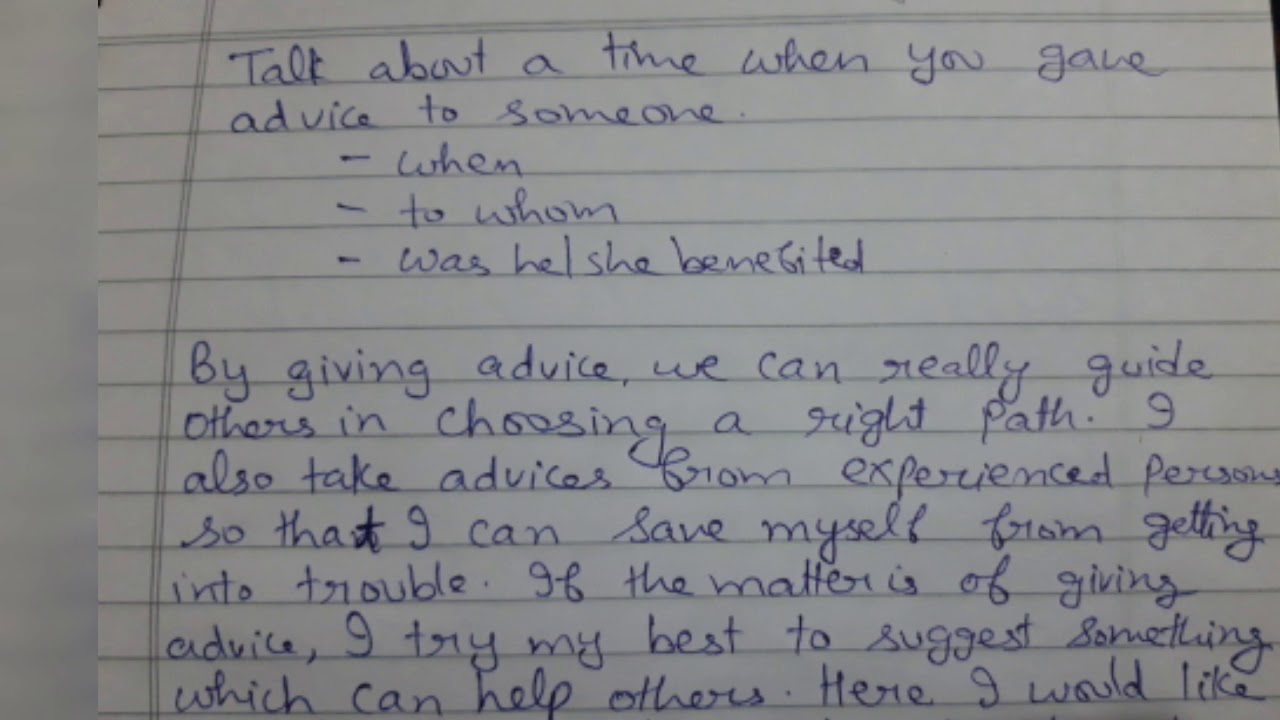 Talk about a time when you gave
advice to someone.
- when
- to whom
- was he/she benefited
By giving advice, we can really guide
others in choosing a right path. I
also take advices from experienced persons
so that I can save myself from getting
into trouble. If the matter is of giving
advice, I try my best to suggest something
which can help others. Here I would like